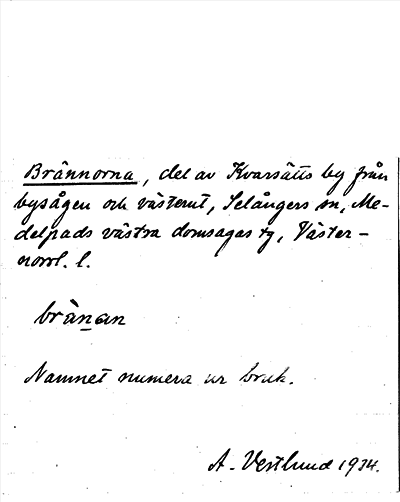 Brännorna, del av Kvarsätts by från
bysågen och västerut, Selångers sn, Me-
delpads västra domsagas tg, Väster-
norrl. l.
bränan
Namnet numera ur bruk.
A. Vestlund 1934.